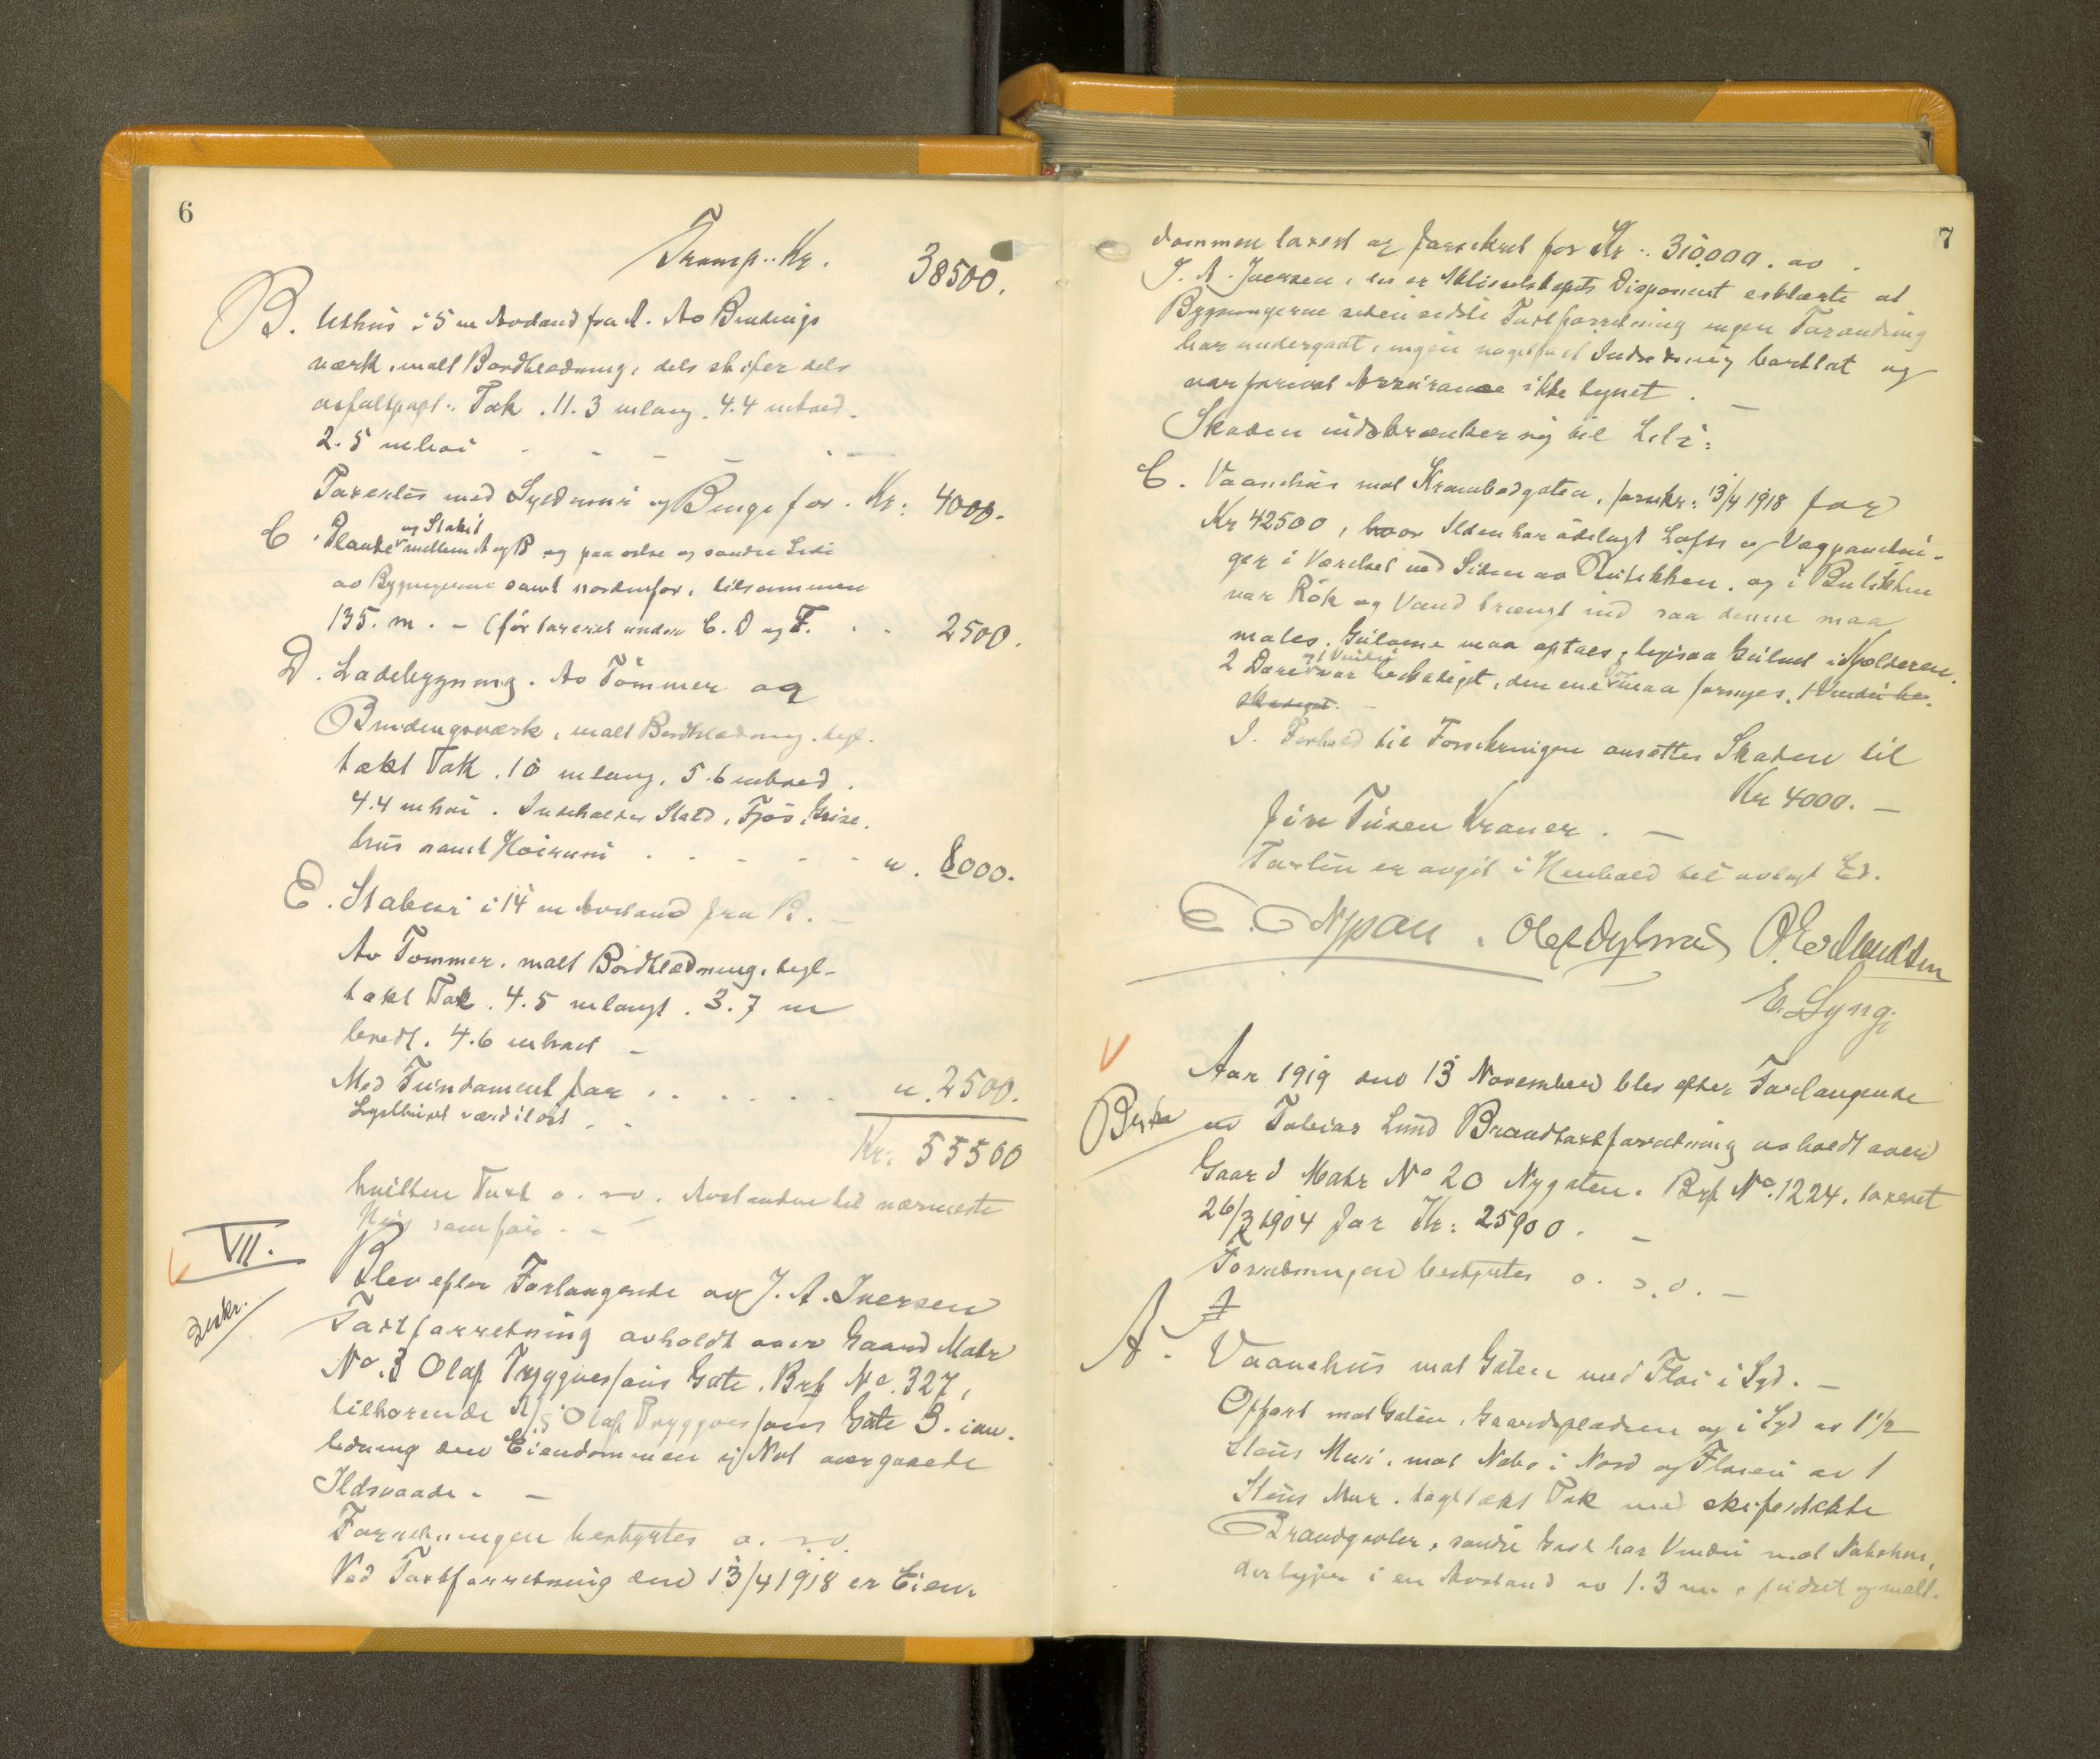 6
Transp. Kr. 38500.
B. Uthus i 5 m Avstand fra A. Av Bindings
værk, malt Bordklædning, dels skifer dels
asfaltpapt. Tak. 11.3 m lang. 4.4 m bred.
2.5 m høi
Taxertes med Syldmur og Binge for. Kr: 4000.
og Stakit
C. Planke mellem A og B og paa østre og søndre Side
av Bygningerne samt nordenfor, tilsammen
135. m. - (før taxeret under C. D og F. 2500.
D. Ladebygning. Av Tömmer og
Bindingsværk, malt Bordklædning, tegl.
tækt Tak. 10 m lang. 5.6 m bred.
4.4 m høi. Indeholder Stald, Fjøs, Grise.
hus samt Høirum " 8000.
E. Stabur i 14 m Avstand fra B. -
Av Tømmer, malt Bordklædning, tegl-
tækt Tak. 4.5 m langt. 3.7 m
bredt. 4.6 m høit -
Med Fundament for " 2500.
Lysthuset værdiløst
Kr: 55500
hvilken Taxt o. s. v. Avstanden til nærmeste
Hus som før. -
VII.
Blev efter Forlangende av J. A. Iversen
Taxtforretning avholdt over Gaard Matr
No. 3 Olaf Tryggvessøns Gate. Brf No. 327,
tilhørende A/S Olaf Tryggvessøns Gate 3. i an.
ledning den Eiendommen ij Nat overgaaede
Ildsvaade. -
Forretningen bestyrtes o. s. v.
Ved Taxtforretning den 13/4 1918 er Eien.
7
dommen taxert og forsikret for Kr. 310.000. av
J. A. Iversen, der er Aktieselskapets Disponent erklærte at
Bygningerne siden sidste Taxtforretning ingen Forandring
har undergaat, ingen nagelfast Indredning bortlat og
var forøvet Assurance ikke tegnet. -
Skaden indskrænker sig til Lit:
C. Vaanehus mot Krambodgaten, forsikr. 13/4 1918 for
Kr 42500, hvor Ilden har ødelagt Lofts og Vægpanelin-
ger i Værelset ved Siden av Butikken. og i Butikken
var Røk og Vand trængt ind saa denne maa
males. Gulvene maa optaes, ligesaa Gulvet i Kjelderen.
og 1 Vindu
2 Døre var beskadiget, den ene Dør maa fornyes, 1 Vindu be.
skadiget. -
I. Forhold til Forsikringen ansættes Skaden til
Kr 4000. -
fire Tusen Kroner. -
Taxten er avgit i Henhold til avlagt Ed.
E. Nypan. O. Erlandsen
E. Lyng.
Aar 1919 den 13 November blev efter Forlangende
av Tobias Lund Brandtaxtforretning avholdt over
Gaard Matr No 20 Nygaten. Brf No. 1224. taxeret
26/3 1904 for Kr: 25900. -
Forretningen bestyrtes o. s. v. -
A. Vaanehus mot Gaten med Fløi i Syd. -
Opført mot Gaten, Gaardspladsen og i Syd av 1 1/2
Stens Mur, mot Nabo i Nord og Fløien av 1
Stens Mur. tegltækt Tak med skifertækte
Brandgavler, søndre Gavl har Vindu mot Nabohus,
der ligger i en Avstand av 1.3 m, pudset og malt.